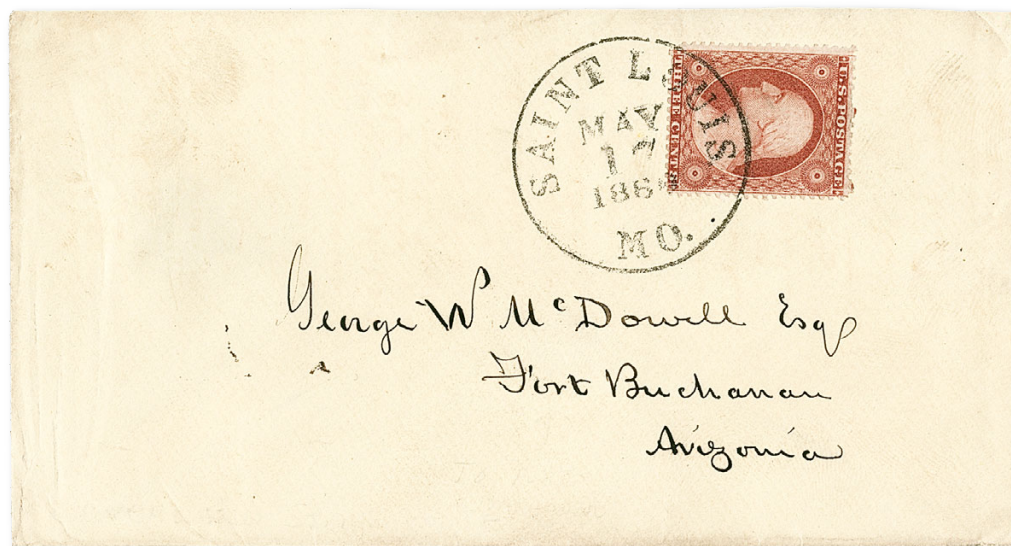 SAINT LOUIS
MAY
17
MO.
THREE CENTS
U.S. POSTAGE
George W McDowell Esq
Fort Buchanan
Arizonia